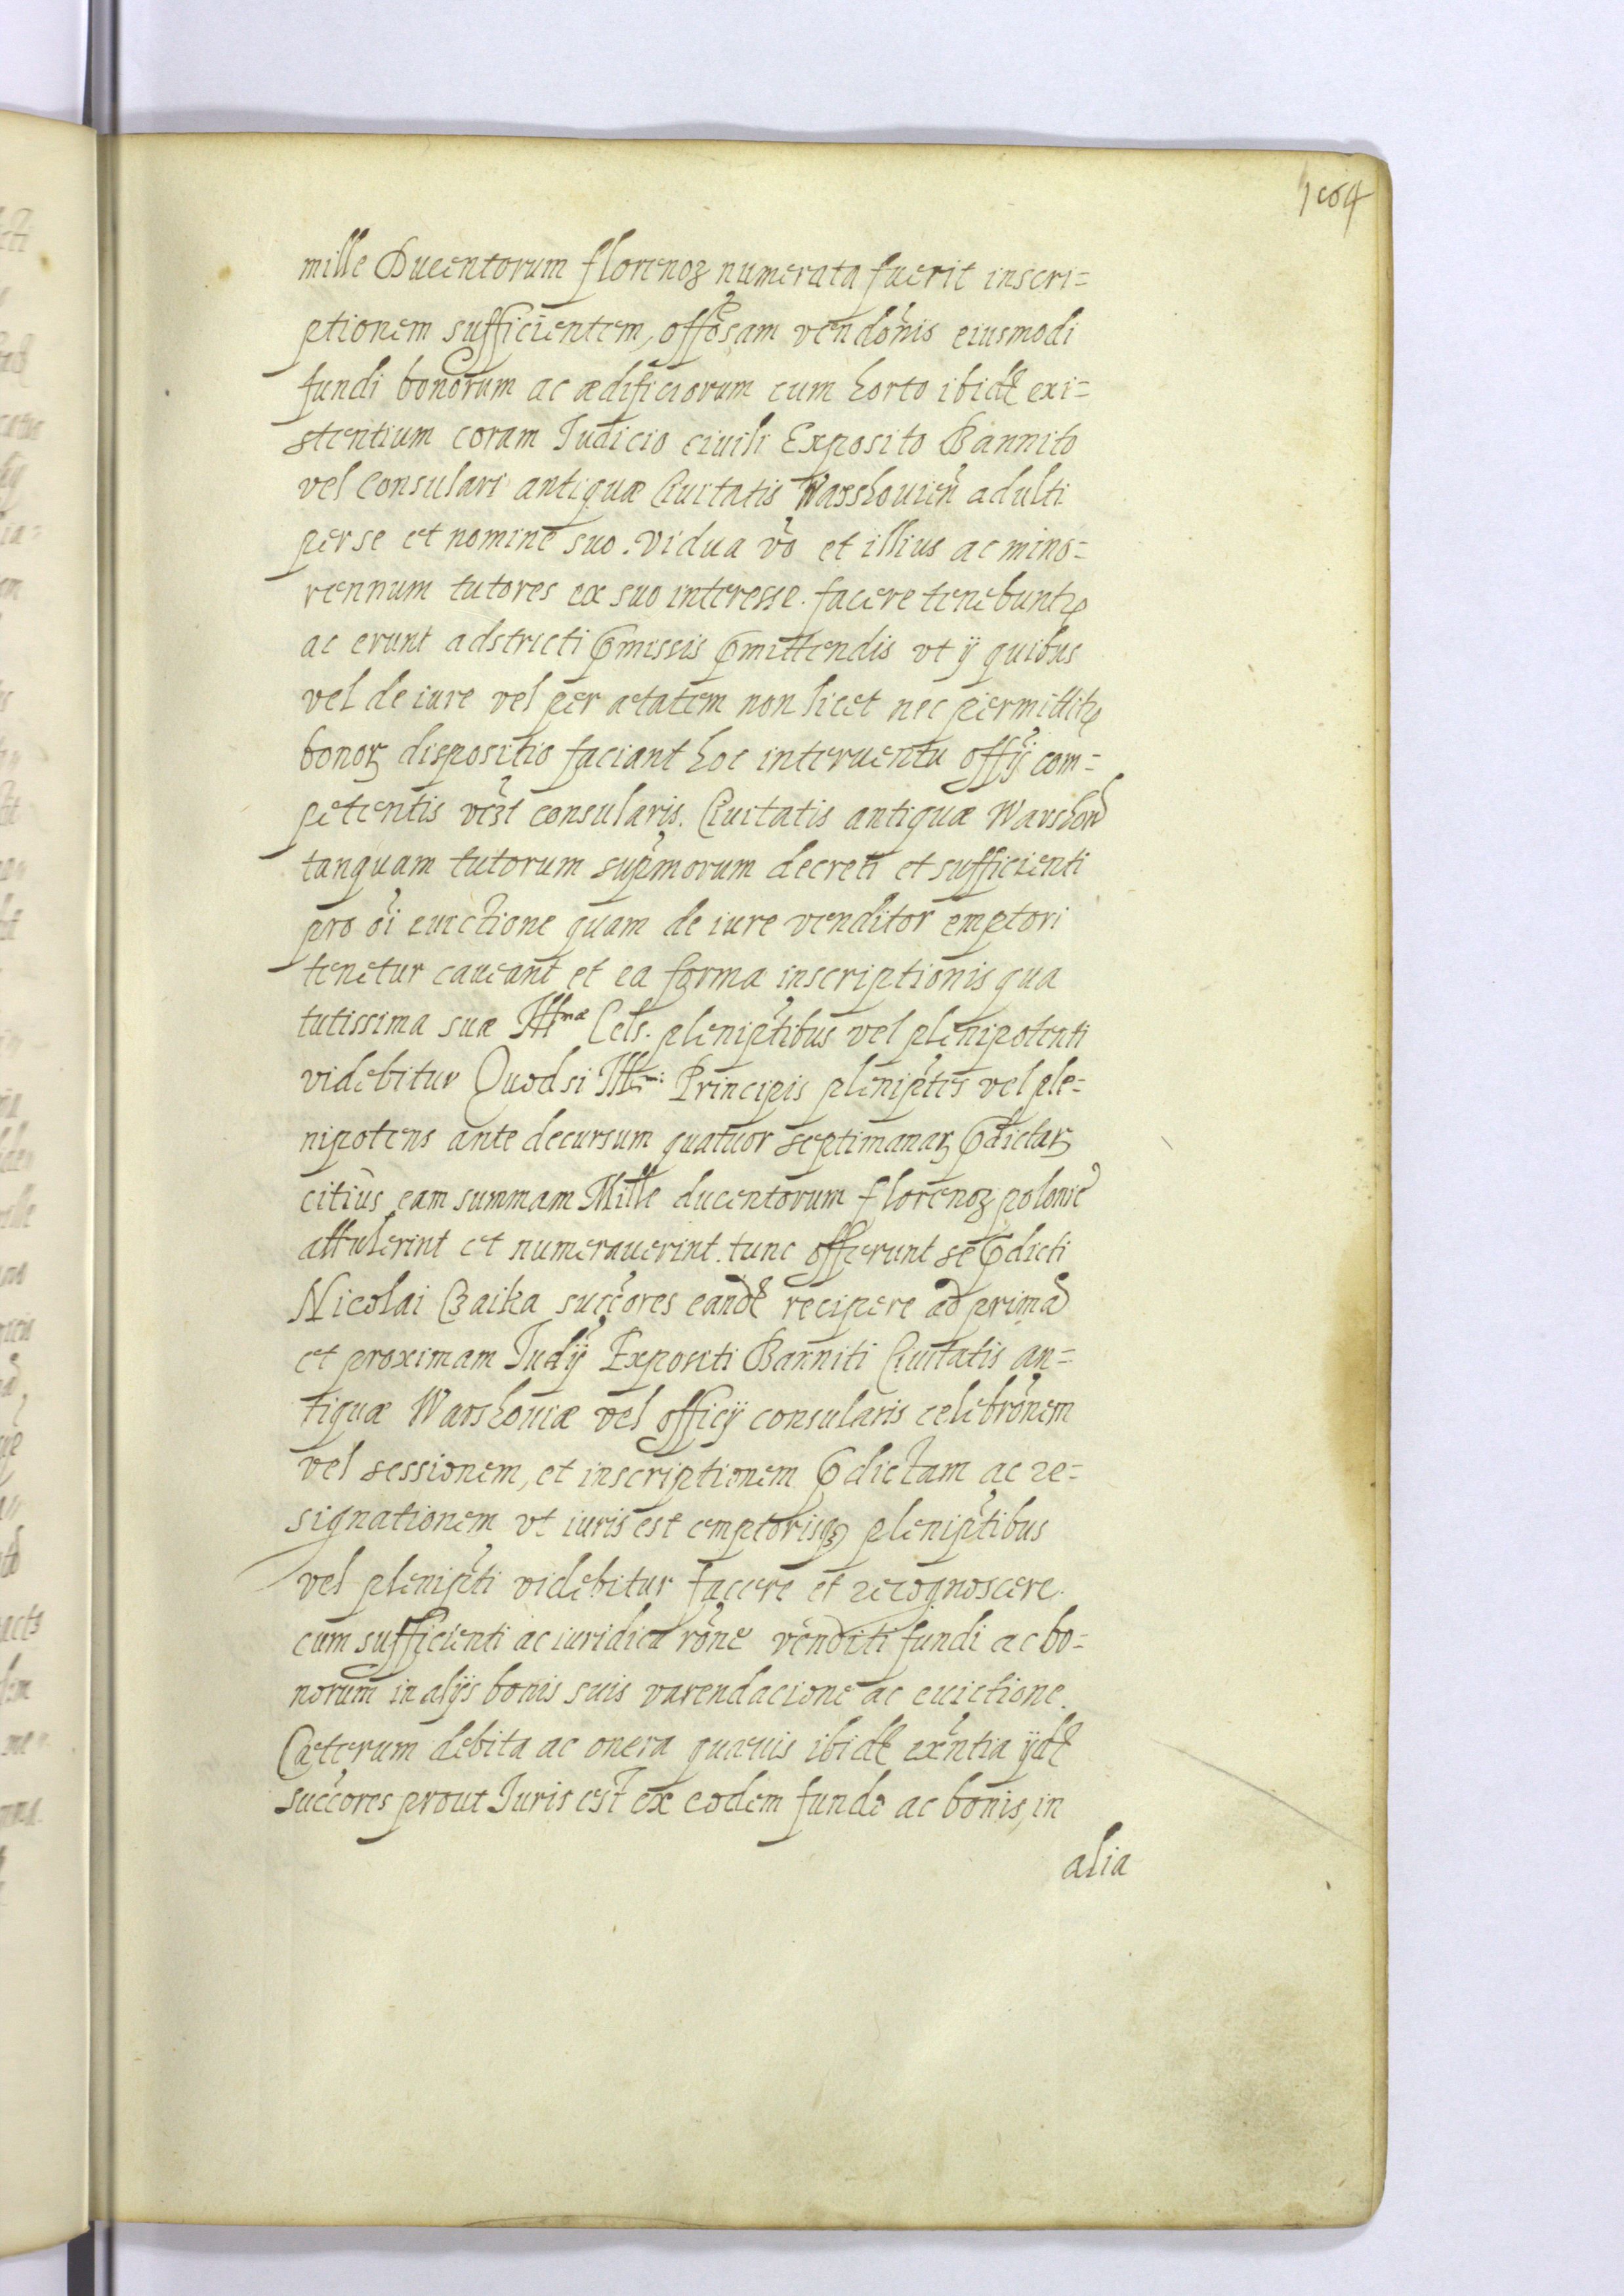 mille Ducentorum florenoꝝ numerata fuerit inscri=
ptionem sufficientem, offõsam vendõnis eiusmodi
fundi bonorum ac ædificiorum cum horto ibidẽ exi=
stentium coram Iudicio ciuili Exposito Bannito
vel consulari antiquæ Ciuitatis Warshouieñ adulti
per se et nomine suo. vidua võ et illius ac mino=
rennum tutores ex suo interesse. facere tenebuntꝛ
ac erunt adstricti p̃missis p̃mittendis vt ij quibus
vel de iure vel per ætatem non licet nec permittitꝛ
bonoꝝ dispositio faciant hoc interuentu offĩj com=
petentis vẽzt consularis. Ciuitatis antiquæ Warshou̅
tanquam tutorum sup̃morum decreti et sufficienti
pro oĩ euictione quam de iure venditor emptori
tenetur caueant et ea forma inscriptionis qua
tutissima suæ Illmæ Cels. plenip̃tibus vel plenipotenti
videbitur Quod si Illmi: Principis plenip̃tes vel ple=
nipotens ante decursum quatuor septimanaꝝ p̃dictaꝝ
citius eam summam Mille ducentorum florenoꝝ polonic̃
attulerint et numerauerint. tunc offerunt se p̃dicti
Nicolai Czaika succ̃ores eandẽ recipere ad primã
et proximam Iudĩj Expositi Banniti Ciuitatis an=
tiquæ Warshouiæ vel officij consularis celebrõnem
vel sessionem, et inscriptionem p̃dictam ac re=
signationem vt iuris est emptorisqꝫ plenip̃tibus
vel plenip̃ti videbitur facere et recognoscere.
cum sufficienti ac iuridica rõne venditi fundi ac bo=
norum in alijs bonis suis varendacione ac euictione.
Cæterum debita ac onera quæuis ibidẽ exñtia ijdẽ
succ̃ores prout Iuris est ex eodem fundo ac bonis, in
alia